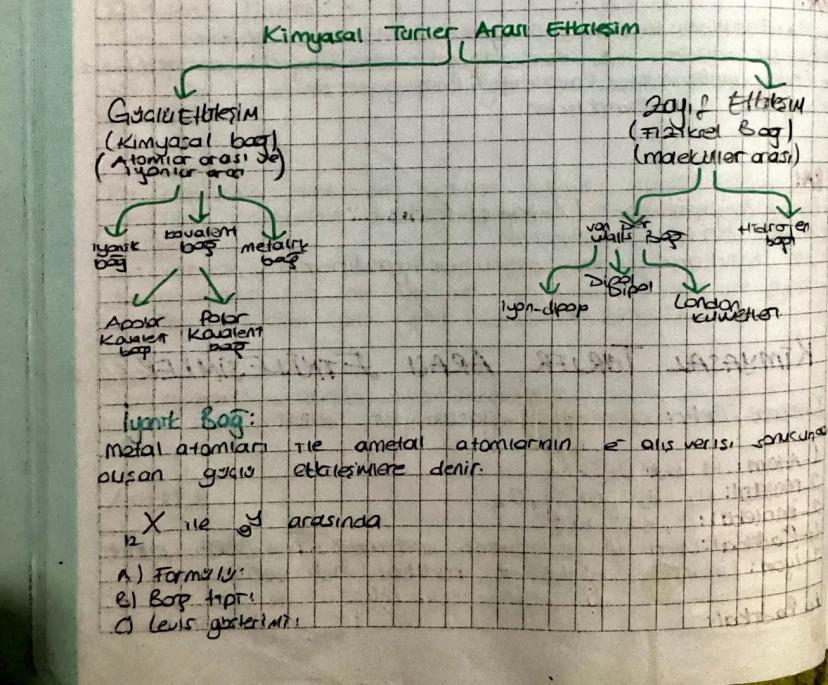 Kimyasal Türler Arası Etkileşim
Güçlü Etkileşim
(Kimyasal bağ)
(Atomlar arası ve
iyonlar arası)
Zayıf Etkileşim
(Fiziksel Bağ)
(moleküller arası)
iyonik
bağ
kovalent
bağ
metalik
bağ
van Der
Walls Bağ
Hidrojen
bağı
Apolar
Kovalent
bağ
Polar
Kovalent
bağ
iyon-dipop
Dipol
Dipol
London
kuvvetleri
İyonik Bağ:
metal atomları ile ametal atomlarının e- alış verişi sonucunda
oluşan güçlü etkileşimlere denir.
12X ile 9Y arasında
A) Formülü:
B) Bağ tipi:
C) Levis gösterimi: